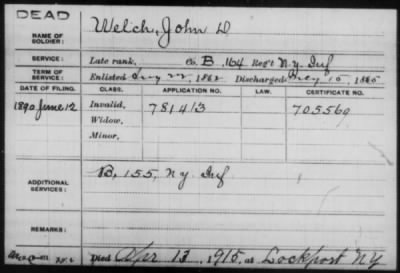 DEAD
NAME OF SOLDIER: Welch, John D
SERVICE: Late rank, Co. B, 164 Reg't N.Y. Inf
TERM OF SERVICE: Enlisted Aug 22, 1862 Discharged July 15, 1865
DATE OF FILING. CLASS. APPLICATION NO. LAW. CERTIFICATE NO.
1890 June 12 Invalid, 781413 705569
Widow,
Minor,
ADDITIONAL SERVICES: B, 155, N.Y. Inf
REMARKS:
Died Apr 13, 1915, at Lockport N.Y.